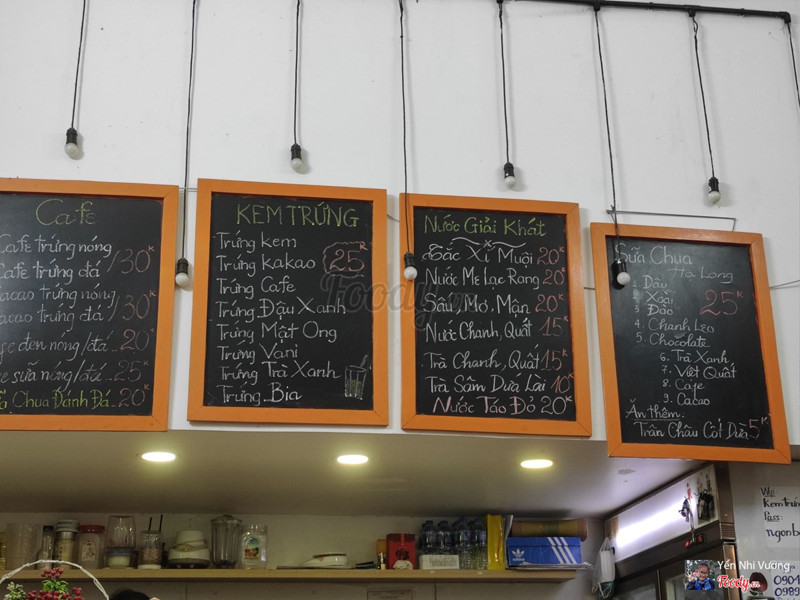 Cafe
Cafe trứng nóng
Cafe trứng đá /30K
Cacao trứng nóng
cacao trứng đá /30K
đen nóng/đá 20K
sữa nóng/đá 25K
Chua Đánh Đá 20K
KEM TRỨNG
Trứng kem
Trứng kakao 25K
Trứng Cafe
Trứng Đậu Xanh
Trứng Mật Ong
Trứng Vani
Trứng Trà Xanh
Trứng Bia
Nước Giải Khát
Sấc Xí Muội 20K
Nước Me Lạc Rang 20K
Sấu, Mơ, Mận 20K
Nước Chanh, Quất 15K
Trà Chanh, Quất 15K
Trà Sâm Dứa Lài 10K
Nước Táo Đỏ 20K
Sữa Chua
Hạ Long
1. Dâu
2. Xoài
3. Đào
25K
4. Chanh Leo
5. Chocolate
6. Trà Xanh
7. Việt Quất
8. Cafe
9. Cacao
Ăn thêm:
Trân Châu Cốt Dừa 5K
Foody.vn
adidas
Wifi
Kemtrứng
Pass:
ngonb
0904
0989
Yến Nhi Vương
Foody.vn